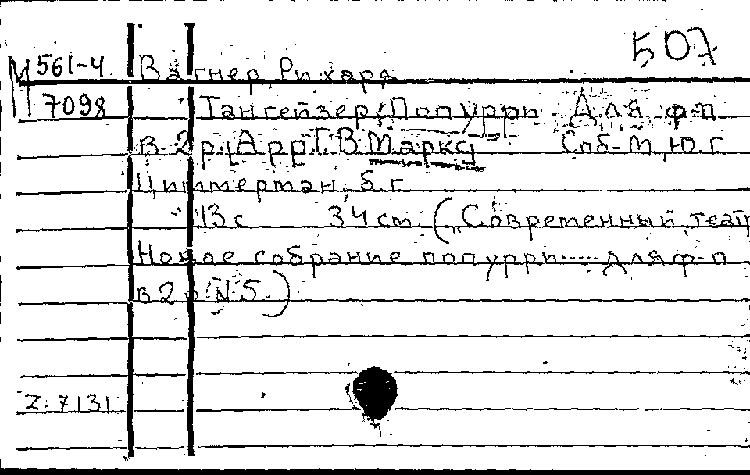 507
М 561-4 Вагнер, Рихард
7098 Тангейзер; Попурри Для ф-п
в 2 р. [Арр.] Г. В. Маркс] Спб-М, Ю. Г.
Циммерман, б. г.
13 с 34 см. („Современный театр
Новое собрание попурри.... для ф-п
в 2 р. N 5.)
Z. 7131